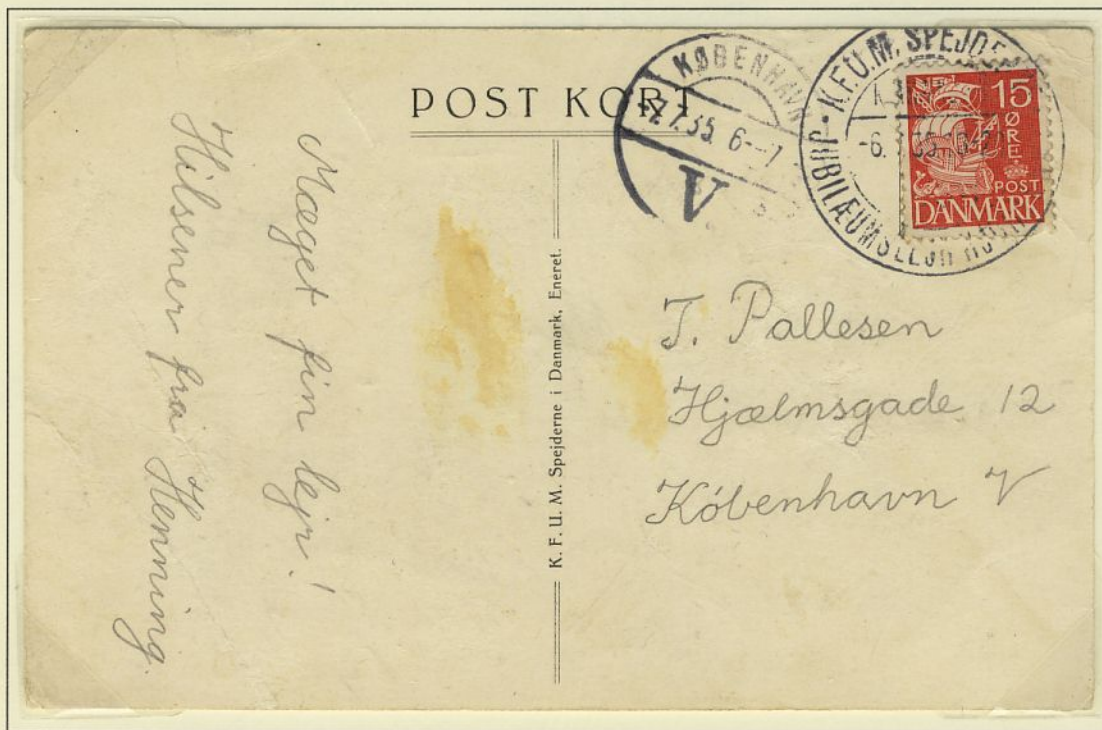 POST KORT
KØBENHAVN
-7.7.35. 6--7
V
K.F.U.M. SPEJDE
JUBILÆUMSLEJR
-6.
15
ØRE
POST
DANMARK
Mæget fin lejr!
Hilsener fra Henning.
K. F. U. M. Spejderne i Danmark, Eneret.
T. Pallesen
Hjælmsgade 12
København V